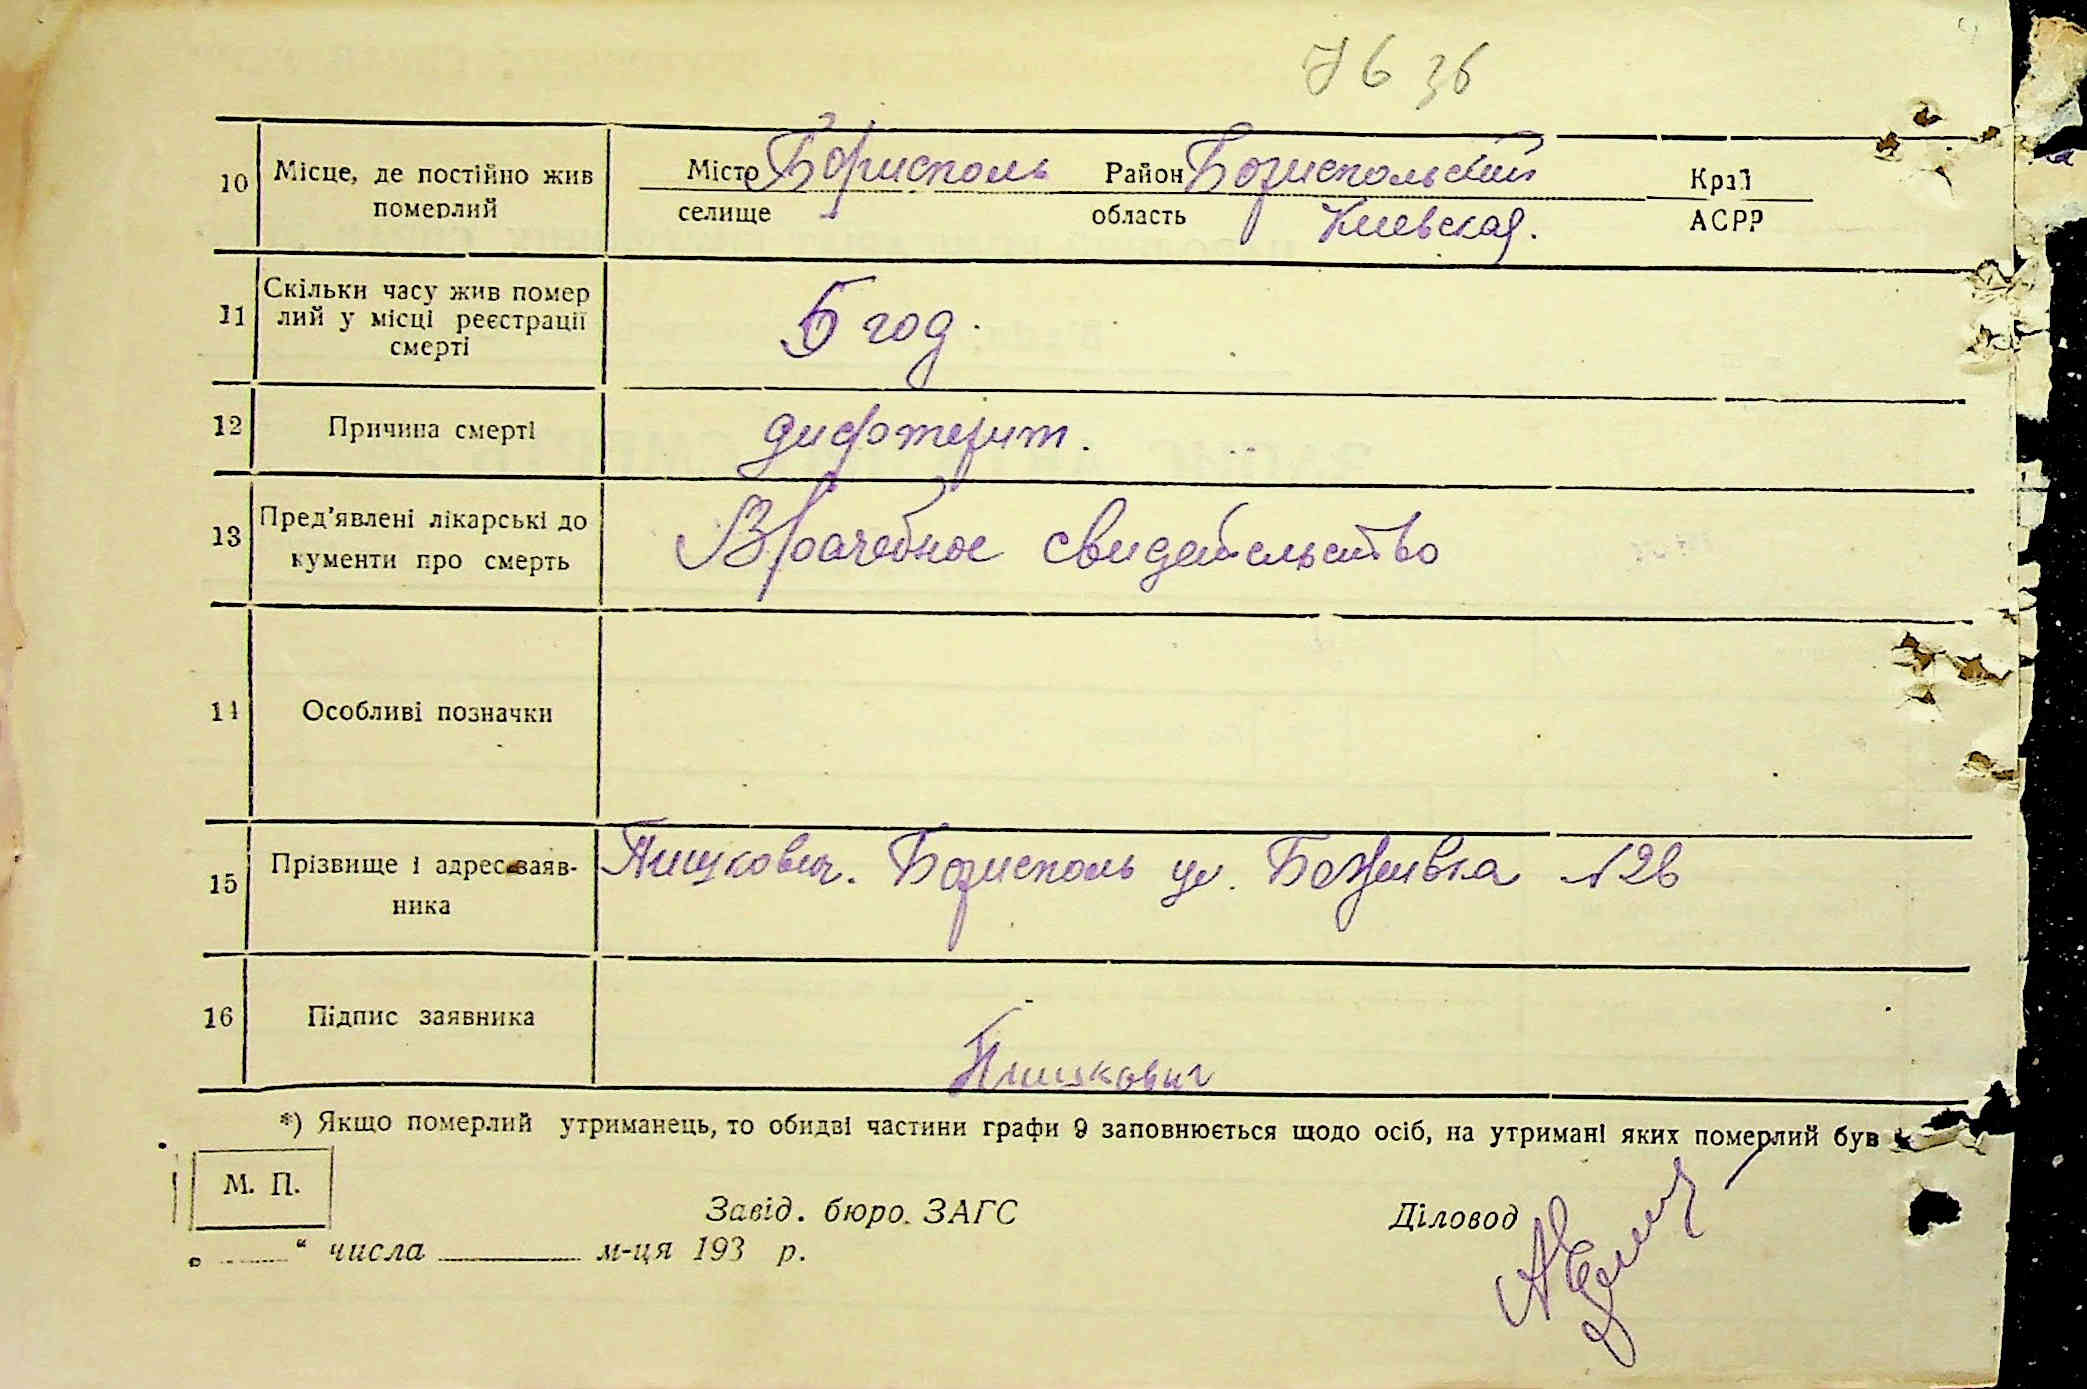 636
10 Місце, де постійно жив Місто Борисполь Район Бориспольский Край
померлий селище область Киевская. АСРР
11 Скільки часу жив помер
лий у місці реєстрації 5 год.
смерті
12 Причина смерті дифтерит.
13 Пред'явлені лікарські до Врачебное свидетельство
кументи про смерть
14 Особливі позначки
15 Прізвище і адрес заяв- Пишкович. Борисполь ул. Ботживка №26
ника
16 Підпис заявника Пишкович
*) Якщо померлий утриманець, то обидві частини графи 9 заповнюється щодо осіб, на утримані яких померлий був
М. П.
Завід. бюро ЗАГС Діловод
„ “ числа м-ця 193 р.